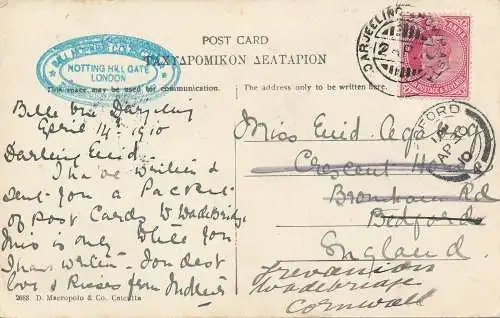 POST CARD
ΤΑΧΥΔΡΟΜΙΚΟΝ ΔΕΛΤΑΡΙΟΝ
NOTTING HILL GATE
LONDON
This space may be used for communication.
The address only to be written here.
DARJEELING
BEDFORD
AP
10
Belle Vue Darjeeling
April 14th 1910
Darling Enid
I have written &
sent you a Packet
of Post Cards to Wadebridge
This is only while you
I have written. Fondest
love & Kisses from Mother
Miss Enid
Crescent
Bromham Rd
Bedford
England
Trevanion
Wadebridge
Cornwall
2683 D. Macropolo & Co. Calcutta